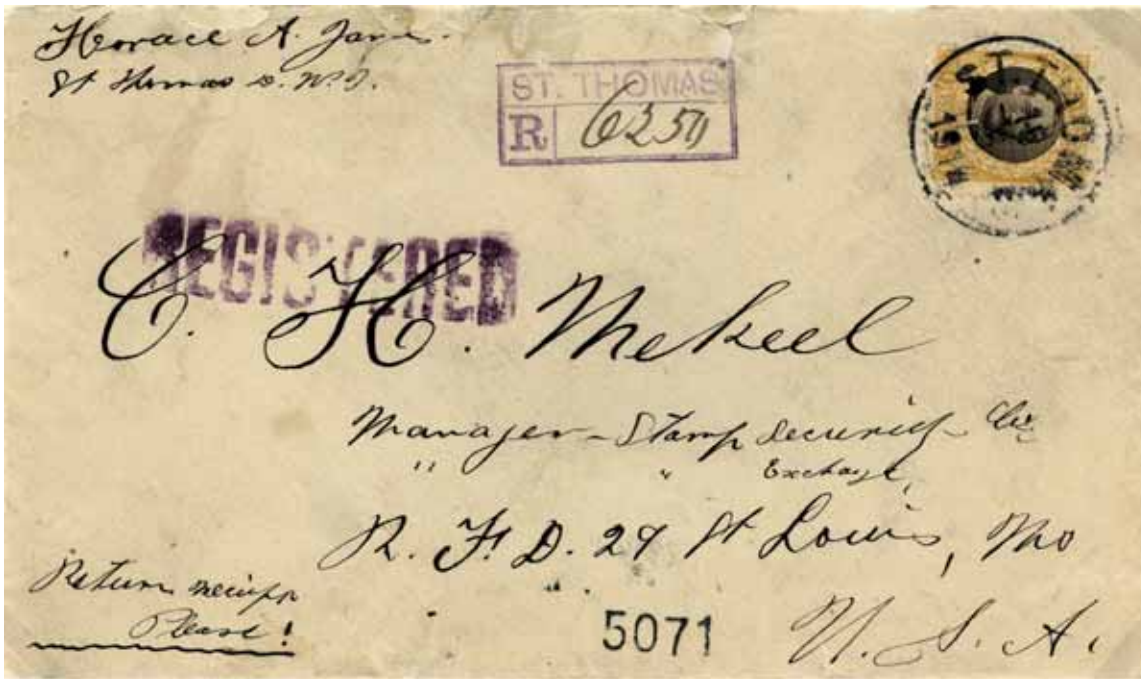 Horace A.
St Thomas D. W. I.
ST. THOMAS
R 6250
ST. THOMAS
REGISTERED
C. H. Mekeel
Manager - Stamp Security Co.
" " Exchange,
R. F. D. 29 St Louis, Mo
U. S. A.
Return receipt
Please!
5071